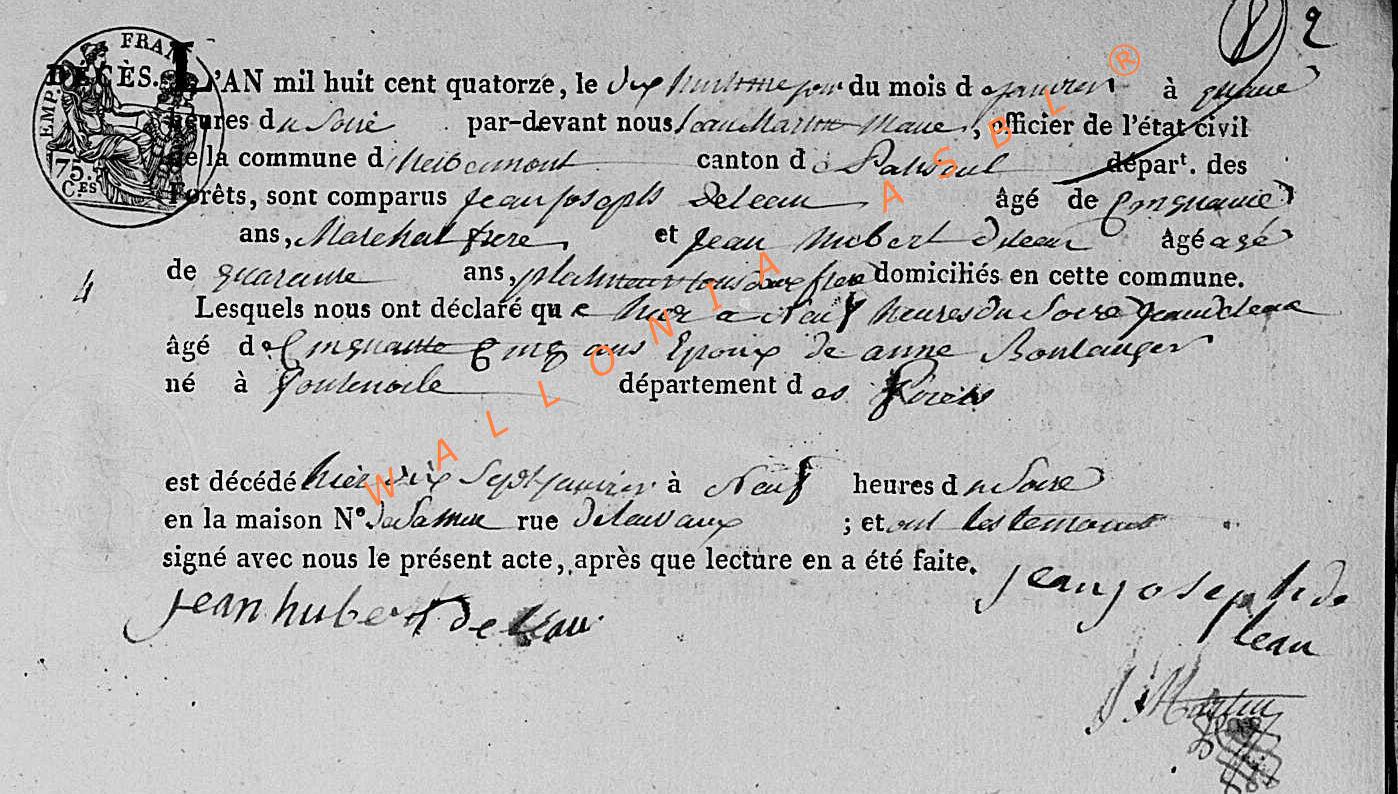 2
FRAN
EMP.
75. Ces
DÉCÈS. L'AN mil huit cent quatorze, le dix huitieme jour du mois de janvier à
heures du Soire par-devant nous Jean Martin Maire, officier de l'état civil
de la commune d canton d départ. des
Forêts, sont comparus jean joseph Deleau âgé de Cinquante
ans, Marchal frere, et jean hubert deleau âgé agé
4
de quarante ans, frere domiciliés en cette commune.
Lesquels nous ont déclaré que hier a neuf heures du Soire jean deleau
âgé de Cinquante Cinq ans Epoux de anne Boulanger
né à département des Forêts
est décédé hier dix Sept janvier à Neuf heures du Soire
en la maison N° rue delavaux ; et ont les temoins
signé avec nous le présent acte, après que lecture en a été faite.
jean hubert de leau
jean joseph de
leau
J Martin
WALLONIA ASBL ®